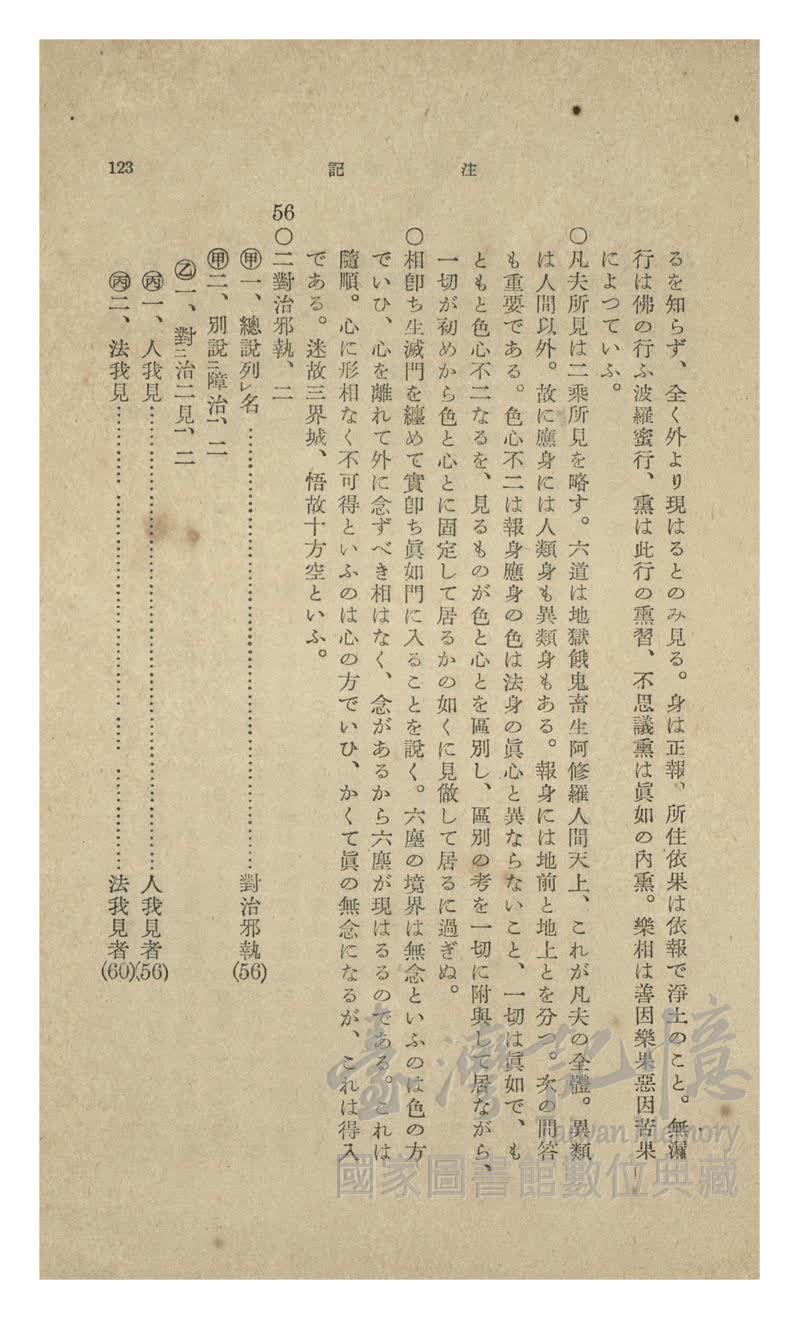 注記
123
るを知らず、全く外より現はるとのみ見る。身は正報、所住依果は依報で淨土のこと。無漏
行は佛の行ふ波羅蜜行、熏は此行の熏習、不思議熏は眞如の內熏。樂相は善因樂果惡因苦果
によつていふ。
〇凡夫所見は二乘所見を略す。六道は地獄餓鬼畜生阿修羅人間天上、これが凡夫の全體。異類
は人間以外。故に應身には人類身も異類身もある。報身には地前と地上とを分つ。次の問答
も重要である。色心不二は報身應身の色は法身の眞心と異ならないこと、一切は眞如で、も
ともと色心不二なるを、見るものが色と心とを區別し、區別の考を一切に附與して居ながら、
一切が初めから色と心とに固定して居るかの如くに見做して居るに過ぎぬ。
〇相卽ち生滅門を纏めて實卽ち眞如門に入ることを說く。六塵の境界は無念といふのは色の方
でいひ、心を離れて外に念ずべき相はなく、念があるから六塵が現はるるのである。これは
隨順。心に形相なく不可得といふのは心の方でいひ、かくて眞の無念になるが、これは得入
である。迷故三界城、悟故十方空といふ。
56〇二對治邪執、二
㊙甲一、總說列レ名……………………對治邪執(56)
甲二、別說ニ障治一、二
乙一、對ニ治二見一、二
丙一、人我見……………………人我見者(56)
丙二、法我見……………………法我見者(60)
臺灣記憶
Taiwan Memory
國家圖書館數位典藏